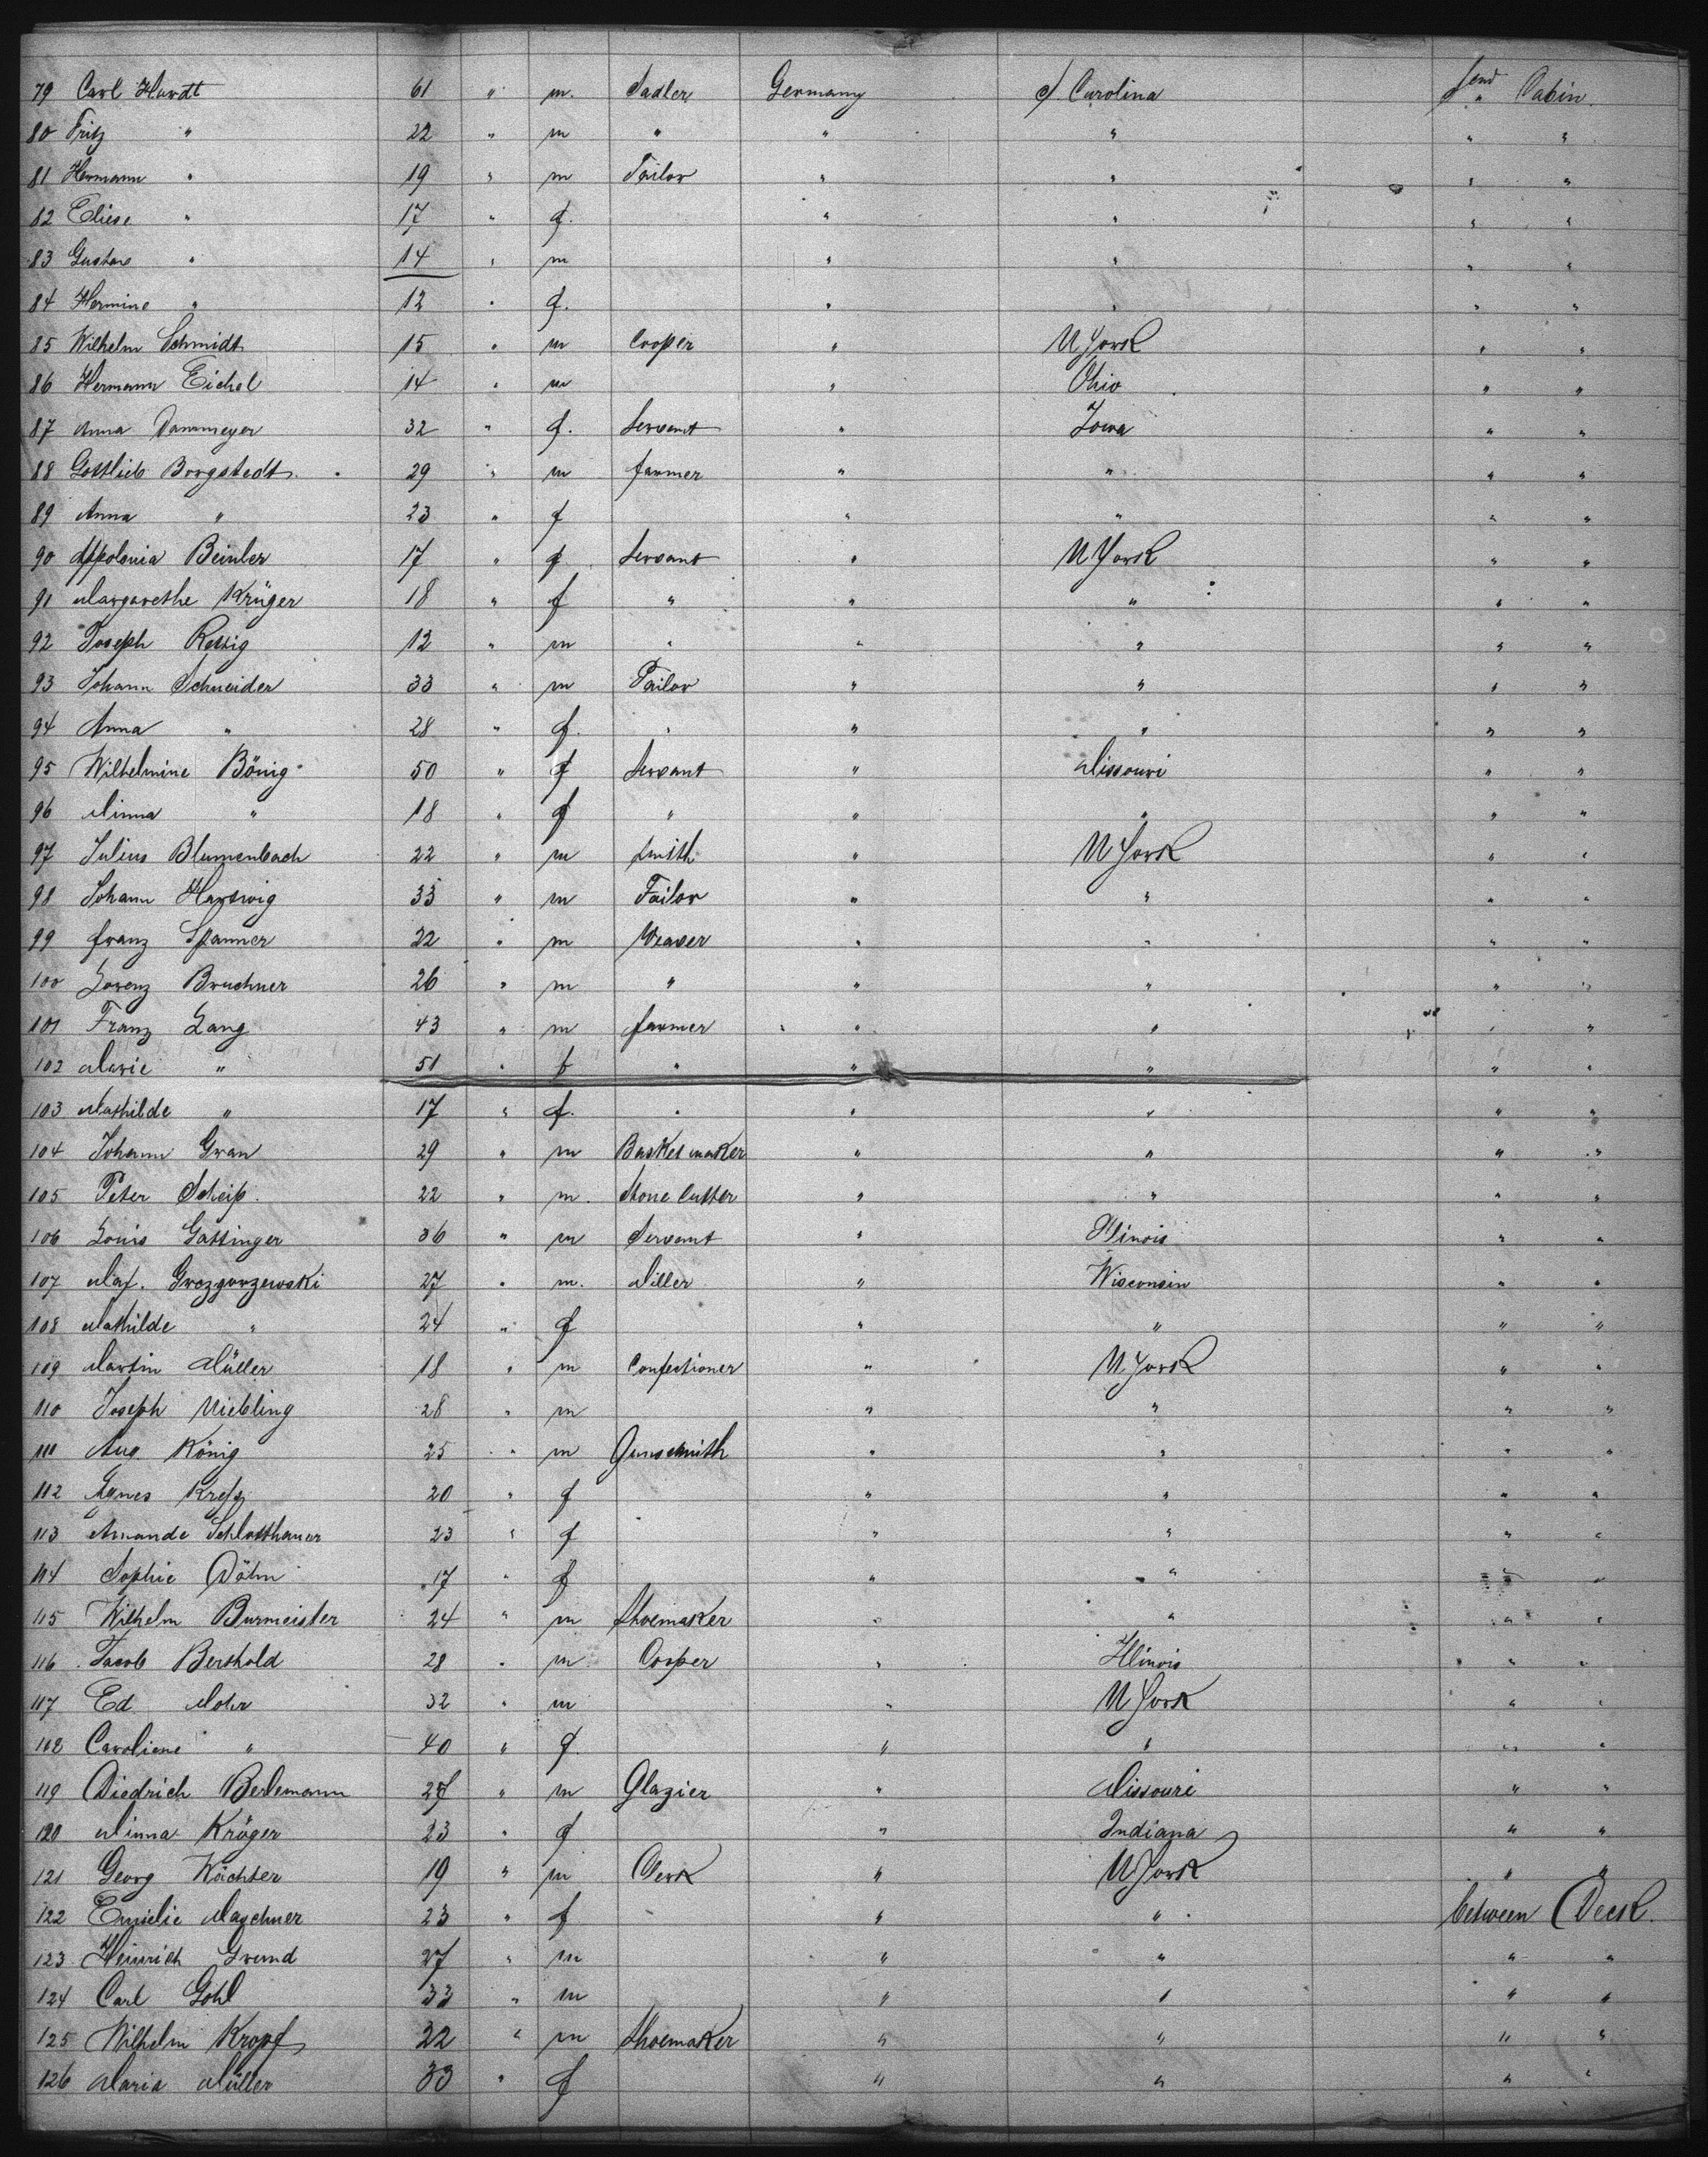 79 Carl Hardt 61 " m. Sadler Germany S. Carolina send " Cabin.
80 Fritz " 22 " m " " " " "
81 Hermann " 19 " m Tailor " " " "
82 Eliese " 17 " f. " " " "
83 Gustav " 14 " m " " " "
84 Hermine " 12 " f. " " " "
85 Wilhelm Schmidt 15 " m Cooper " N York " "
86 Hermann Eichel 14 " m " Ohio " "
87 Anna Dammeyer 32 " f. Servant " Iowa " "
88 Gottlieb Borgstedt 29 " m farmer " " " "
89 Anna " 23 " f " " " "
90 Appolonia Beinler 17 " f Servant " N York " "
91 Margarethe Krüger 18 " f " " " " "
92 Joseph Rettig 12 " m " " " " "
93 Johann Schneider 33 " m Tailor " " " "
94 Anna " 28 " f. " " " " "
95 Wilhelmine Bönig 50 " f Servant " Missouri " "
96 Minna " 18 " f " " " " "
97 Julius Blumenbach 22 " m Smith " N York " "
98 Johann Hartwig 33 " m Tailor " " " "
99 Franz Spanner 32 " m Weaver " " " "
100 Lorenz Bruchner 26 " m " " " " "
101 Franz Lang 43 " m farmer " " " "
102 Marie " 51 " f " " " " "
103 Mathilde " 17 " f. " " " " "
104 Johann Gran 29 " m Basket maker " " " "
105 Peter Scheiß. 22 " m. Stone Cutter " " " "
106 Louis Gattinger 36 " m Servant " Illinois " "
107 Maj. Grozgorzewski 27 " m. Miller " Wisconsin " "
108 Mathilde " 24 " f " " " "
109 Martin Müller 18 " m Confectioner " N York " "
110 Joseph Niebling 28 " m " " " "
111 Aug. König 25 " m Gunsmith " " " "
112 Agnes Kreß 20 " f " " " "
113 Amande Schlotthauer 23 " f " " " "
114 Sophie Döhn 17 " f " " " "
115 Wilhelm Burmeister 24 " m Shoemaker " " " "
116 Jacob Berthold 28 " m Cooper " Illinois " "
117 Ed Mohr 32 " m " N York " "
118 Caroliene " 40 " f. " " " "
119 Diedrich Berlemann 27 " m Glazier " Missouri " "
120 Minna Kröger 23 " f " Indiana " "
121 Georg Wächter 19 " m Clerk " N York " "
122 Emielie Maschner 23 " f " " between Deck.
123 Heinrich Grund 27 " m " " " "
124 Carl Gohl 33 " m " " " "
125 Wilhelm Kropf 32 " m Shoemaker " " " "
126 Maria Müller 33 " f " " " "